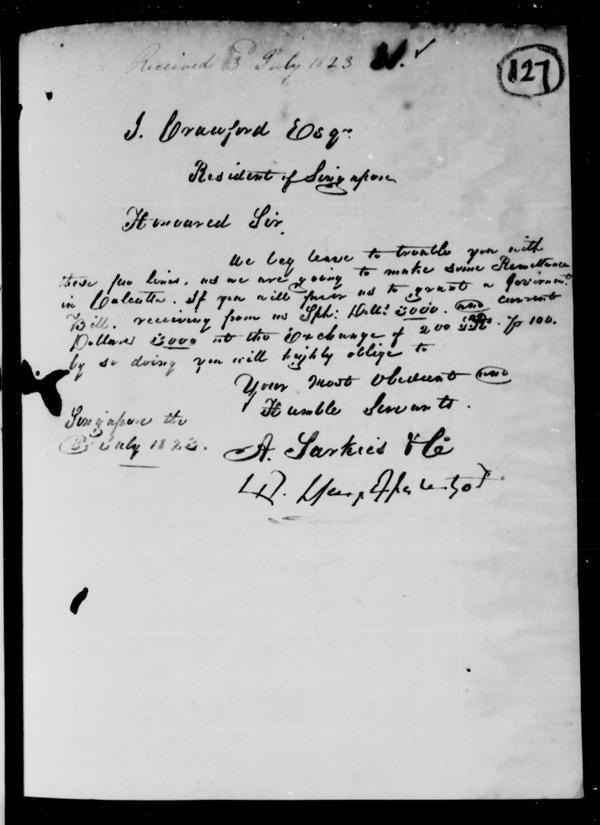 Received 3d July 1823
127
J. Crawford Esqre
Resident of Singapore
Honoured Sir,
We beg leave to trouble you with
these few lines, as we are going to make some Remittance
in Calcutta. If you will favor us to grant a Governmt
Bill. receiving from us Sph: Dolls 3000. and current
Dollars 3000 at the Exchange of 200 p 100.
by so doing you will highly oblige to
Your Most Obedient and
Humble Servants.
Singapore the
3d July 1823.
A. Sarkies & Co